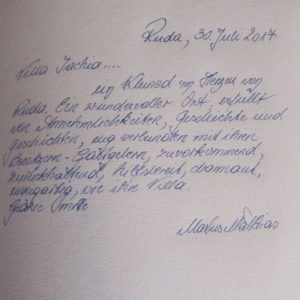 Ruda, 30. Juli 2017
Villa Jachia....
ein Kleinod im Herzen von
Ruda. Ein wundervoller Ort, erfüllt
von Annehmlichkeiten, Geschichte und
Geschichten, eng verbunden mit ihren
Gastgebern, zuvorkommend,
zurückhaltend, hilfsbereit, charmant,
einzigartig, wie ihre Villa.
Grazie